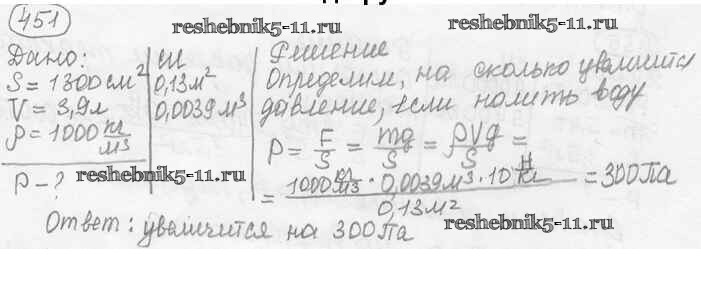 451
reshebnik5-11.ru
reshebnik5-11.ru
Дано:
S = 1300 см²
V = 3,9 л
ρ = 1000 кг/м³
p - ?
СИ
0,13 м²
0,0039 м³
Решение
Определим, на сколько увеличится
давление, если налить воду
p = F/S = mg/S = ρVg/S =
= 1000 кг/м³ · 0,0039 м³ · 10 Н/кг / 0,13 м² = 300 Па
reshebnik5-11.ru
reshebnik5-11.ru
Ответ: увеличится на 300 Па